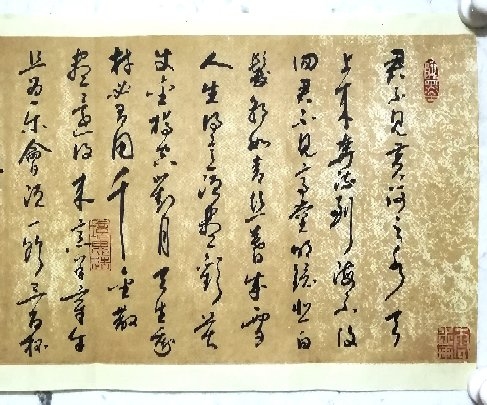 君不見黃河之水天
上來奔流到海不復
回君不見高堂明鏡悲白
髮朝如青絲暮成雪
人生得意須盡歡莫
使金樽空對月天生我
材必有用千金散
盡還復來烹羊宰牛
且為樂會須一飲三百杯